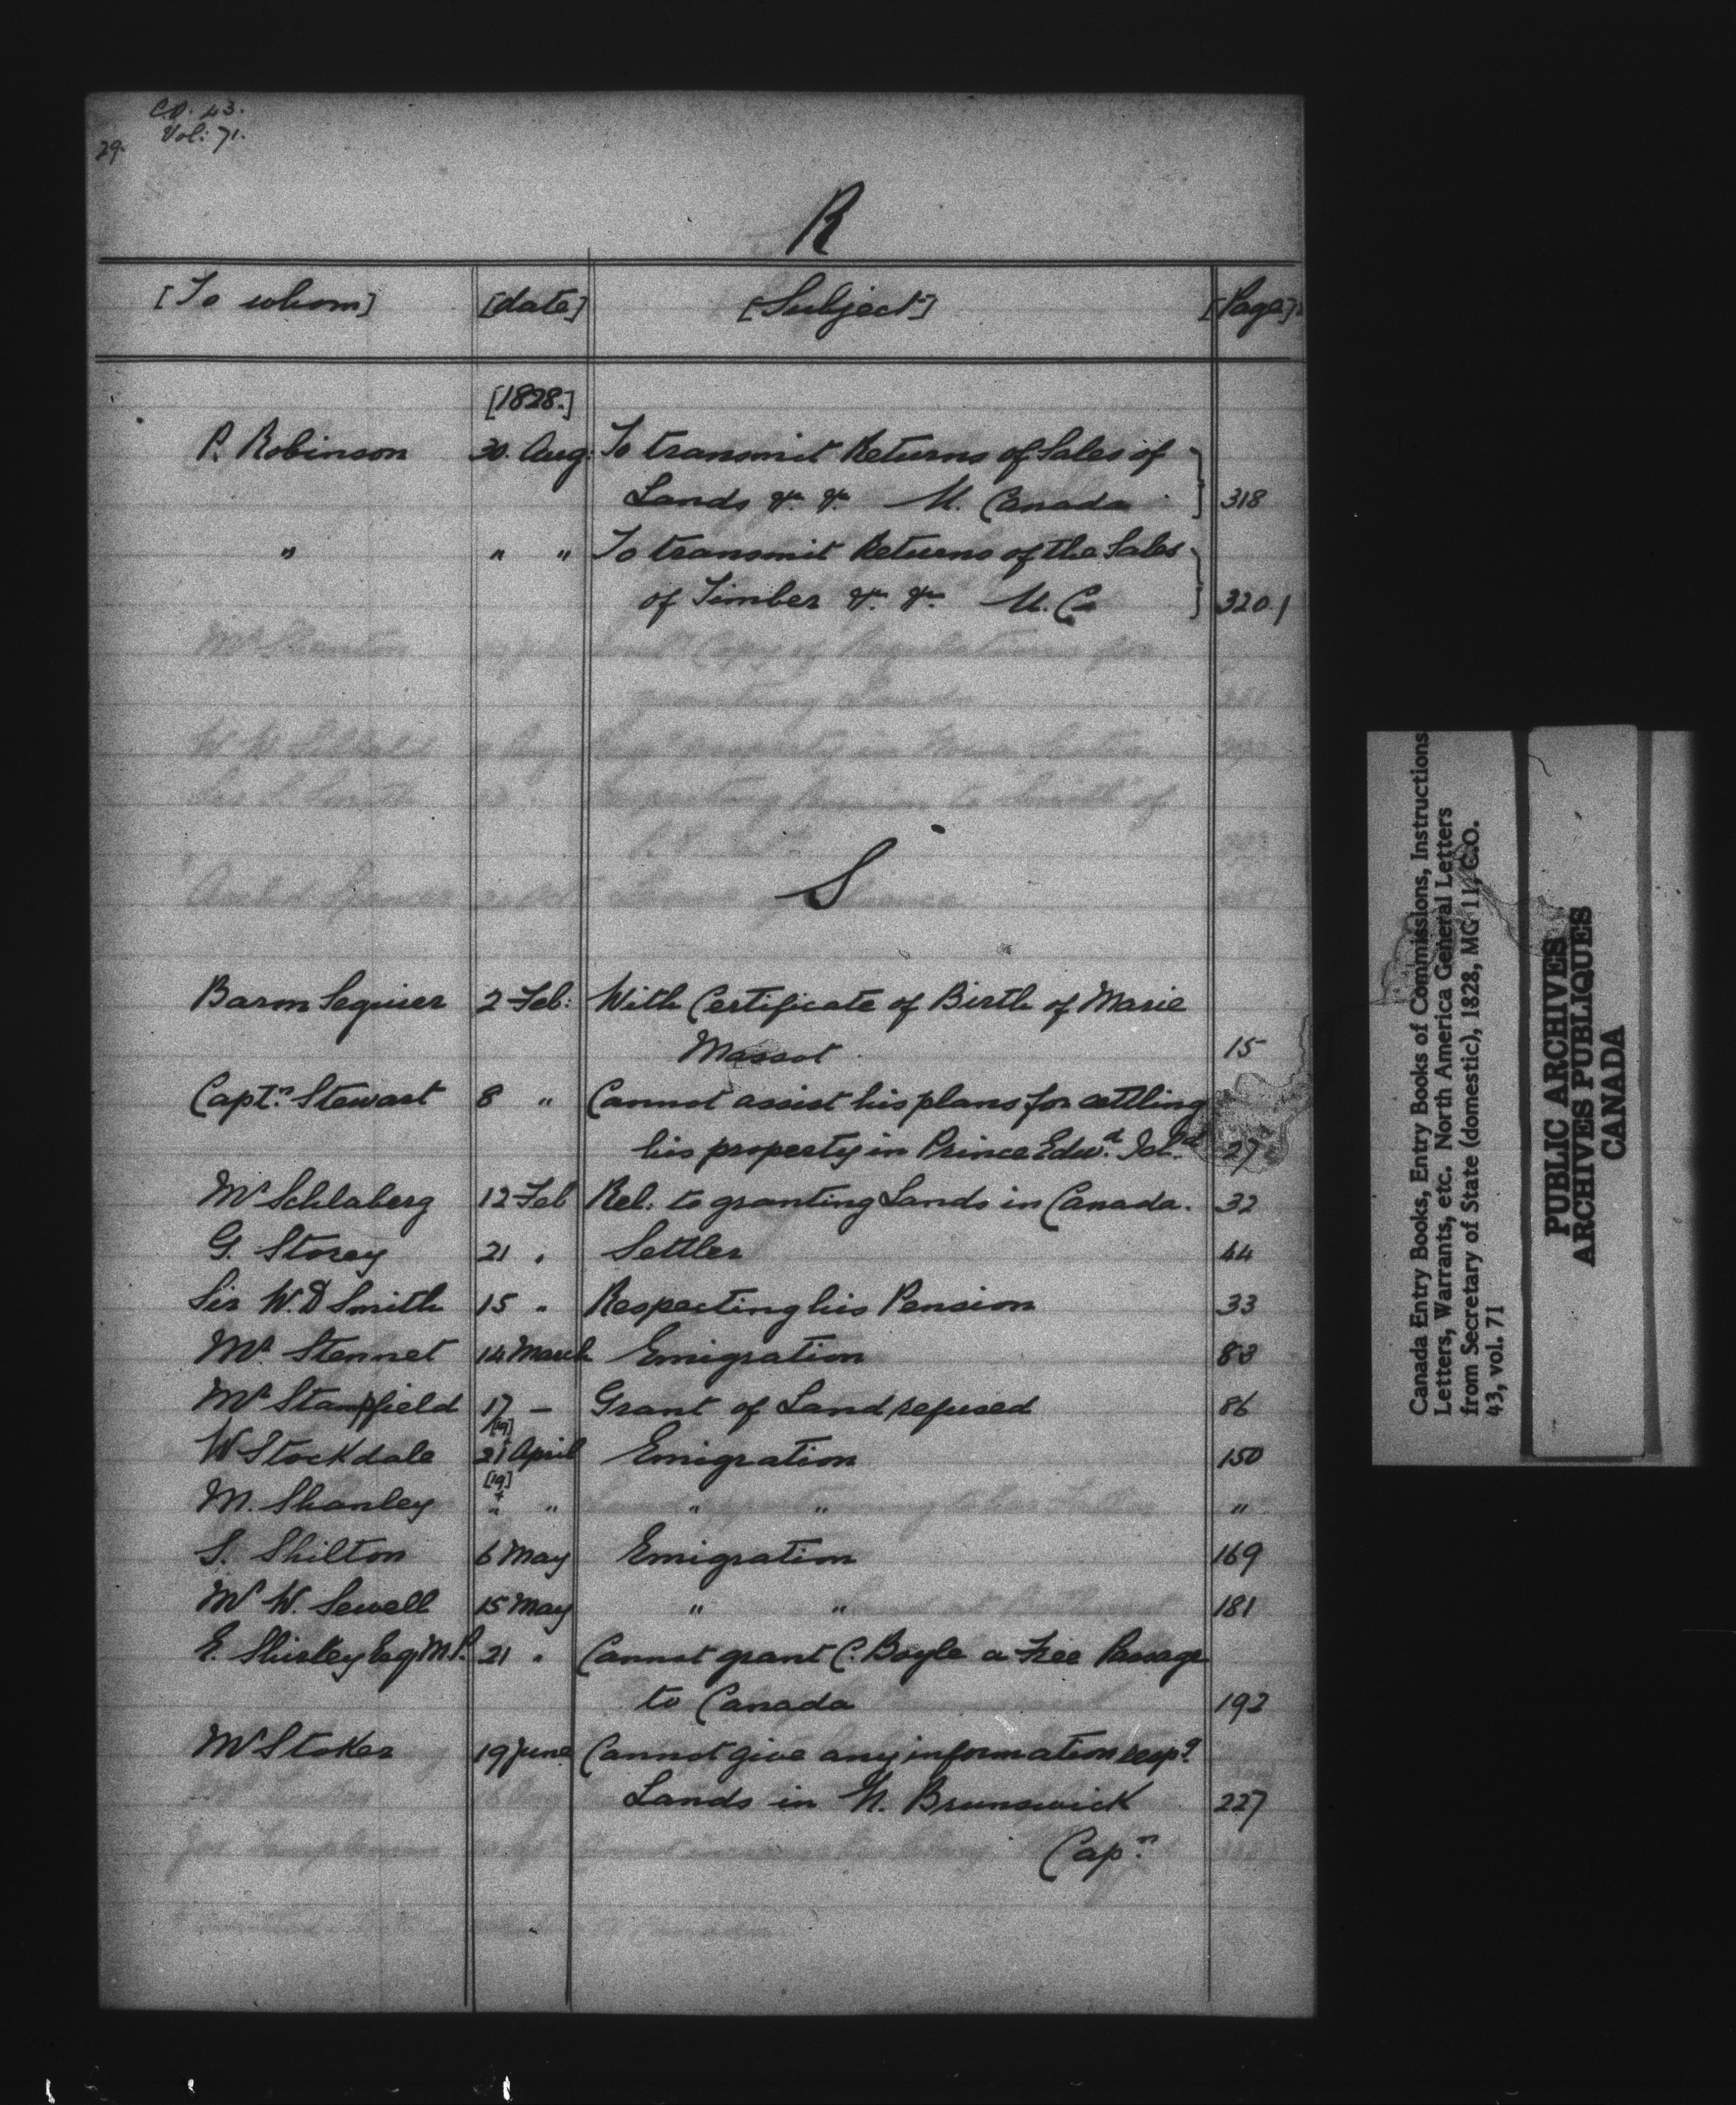 C.O. 43.
Vol: 71.
29.
R
[To whom] [date] [Subject] [Page]
[1828.]
P. Robinson 30. Aug: To transmit Returns of Sales of
Lands &c. &c. U. Canada 318
" " " To transmit Returns of the Sales
of Timber &c. &c. U. Ca 320.1
S
Baron Seguier 2 Feb: With Certificate of Birth of Marie
Massot 15
Captn. Stewart 8 " Cannot assist his plans for settling
his property in Prince Edwd. Isld. 27
Mr Schlaberg 12 Feb Rel: to granting Lands in Canada. 32
G. Storey 21 " Settler 44
Sir W. D Smith 15 " Respecting his Pension 33
Mr. Stennet 14 March Emigration 83
Mr Stanfield 17 - Grant of Land refused 86
[19]
W Stockdale 21 April Emigration 150
[19]
M. Shanley " " " " "
S. Shilton 6 May Emigration 169
Mr W. Sewell 15 May " " 181
E. Shirley Esq M.P. 21 " Cannot grant C. Boyle a Free Passage
to Canada 192
Mr Stoker 19 June Cannot give any information respg.
Lands in N. Brunswick 227
Capn.
Canada Entry Books, Entry Books of Commissions, Instructions
Letters, Warrants, etc. North America General Letters
from Secretary of State (domestic), 1828, MG 11, C.O.
43, vol. 71
PUBLIC ARCHIVES
ARCHIVES PUBLIQUES
CANADA